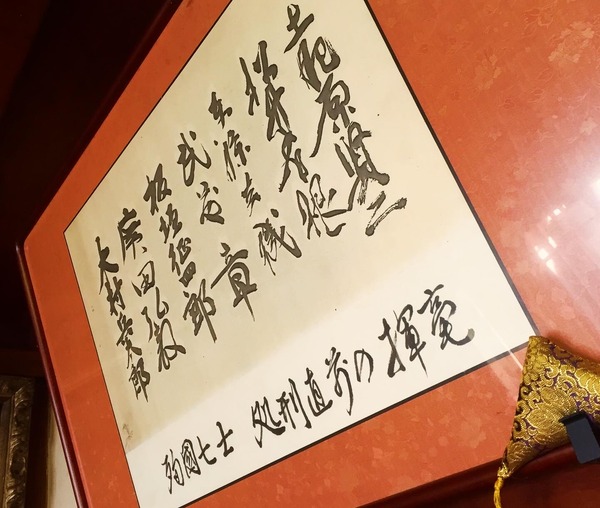 土肥原賢二
松井石根
東條英機
武藤章
板垣征四郎
廣田弘毅
木村兵太郎
殉國七士 処刑直前の揮毫